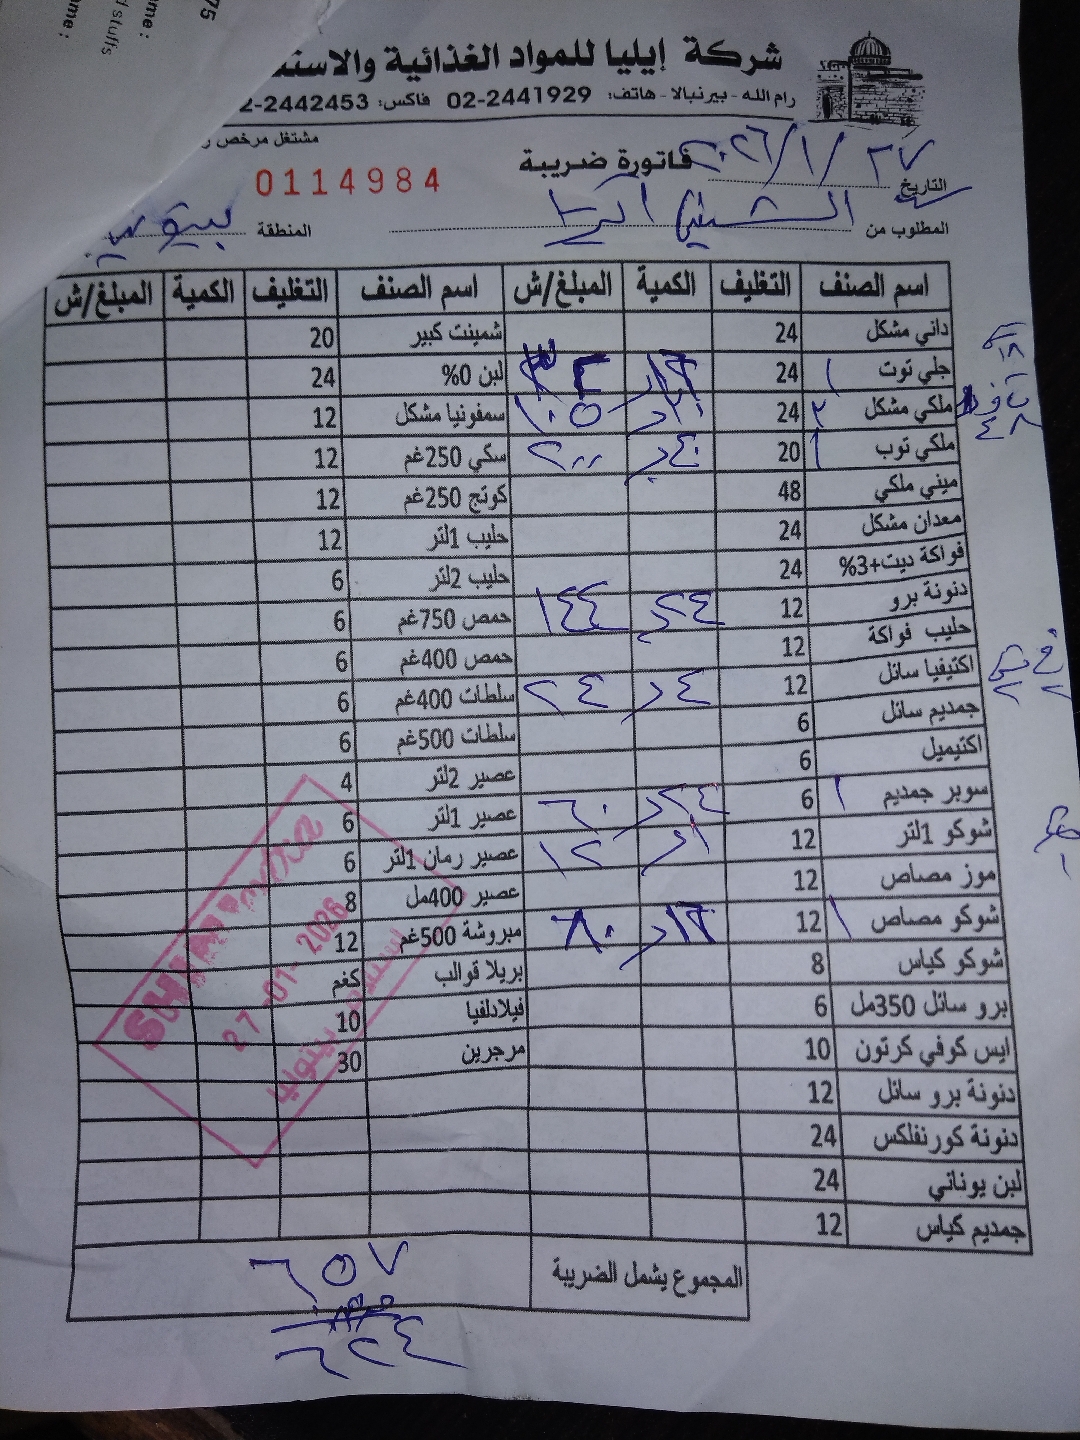 شركة إيليا للمواد الغذائية والاستـ
رام الله - بيرنبالا - هاتف: 02-2441929 فاكس: 2-2442453
مشتغل مرخص ر
فاتورة ضريبة
0114984
التاريخ ٢٧ / ١ / ٢٠٢٦
المطلوب من الشني
المنطقة
اسم الصنف التغليف الكمية المبلغ/ش اسم الصنف التغليف الكمية المبلغ/ش
داني مشكل 24 شمينت كبير 20
جلي توت ١ 24 لبن 0% 24
ملكي مشكل ٢ 24 ١٠٥ سمفونيا مشكل 12
ملكي توب ١ 20 ٤٠ ٢٠٠ سكي 250غم 12
ميني ملكي 48 كوتج 250غم 12
معدان مشكل 24 حليب 1لتر 12
فواكة ديت+3% 24 حليب 2لتر 6
دنونة برو 12 ٢٤ ١٤٤ حمص 750غم 6
حليب فواكة 12 حمص 400غم 6
اكتيفيا سائل 12 ٤ ٢٤ سلطات 400غم 6
جمديم سائل 6 سلطات 500غم 6
اكتيميل 6 عصير 2لتر 4
سوبر جمديم ١ 6 ٢٤ ٦٠ عصير 1لتر 6
شوكو 1لتر 12 ١٢ عصير رمان 1لتر 6
موز مصاص 12 عصير 400مل 8
شوكو مصاص ١ 12 ١٢ ٦٠ مبروشة 500غم 12
شوكو كياس 8 بريلا قوالب كغم
برو سائل 350مل 6 فيلادلفيا 10
ايس كوفي كرتون 10 مرجرين 30
دنونة برو سائل 12
دنونة كورنفلكس 24
لبن يوناني 24
جمديم كياس 12
المجموع يشمل الضريبة ٦٥٧
٦٢٤
27 -01- 2026